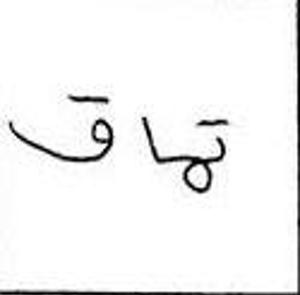 تماق